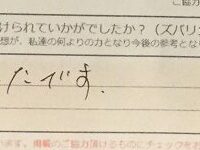 けられていかがでしたか？（ズバリ
想が、私達の何よりの力となり今後の参考となり
たです。
います。掲載のご協力頂けるものにチェックをお